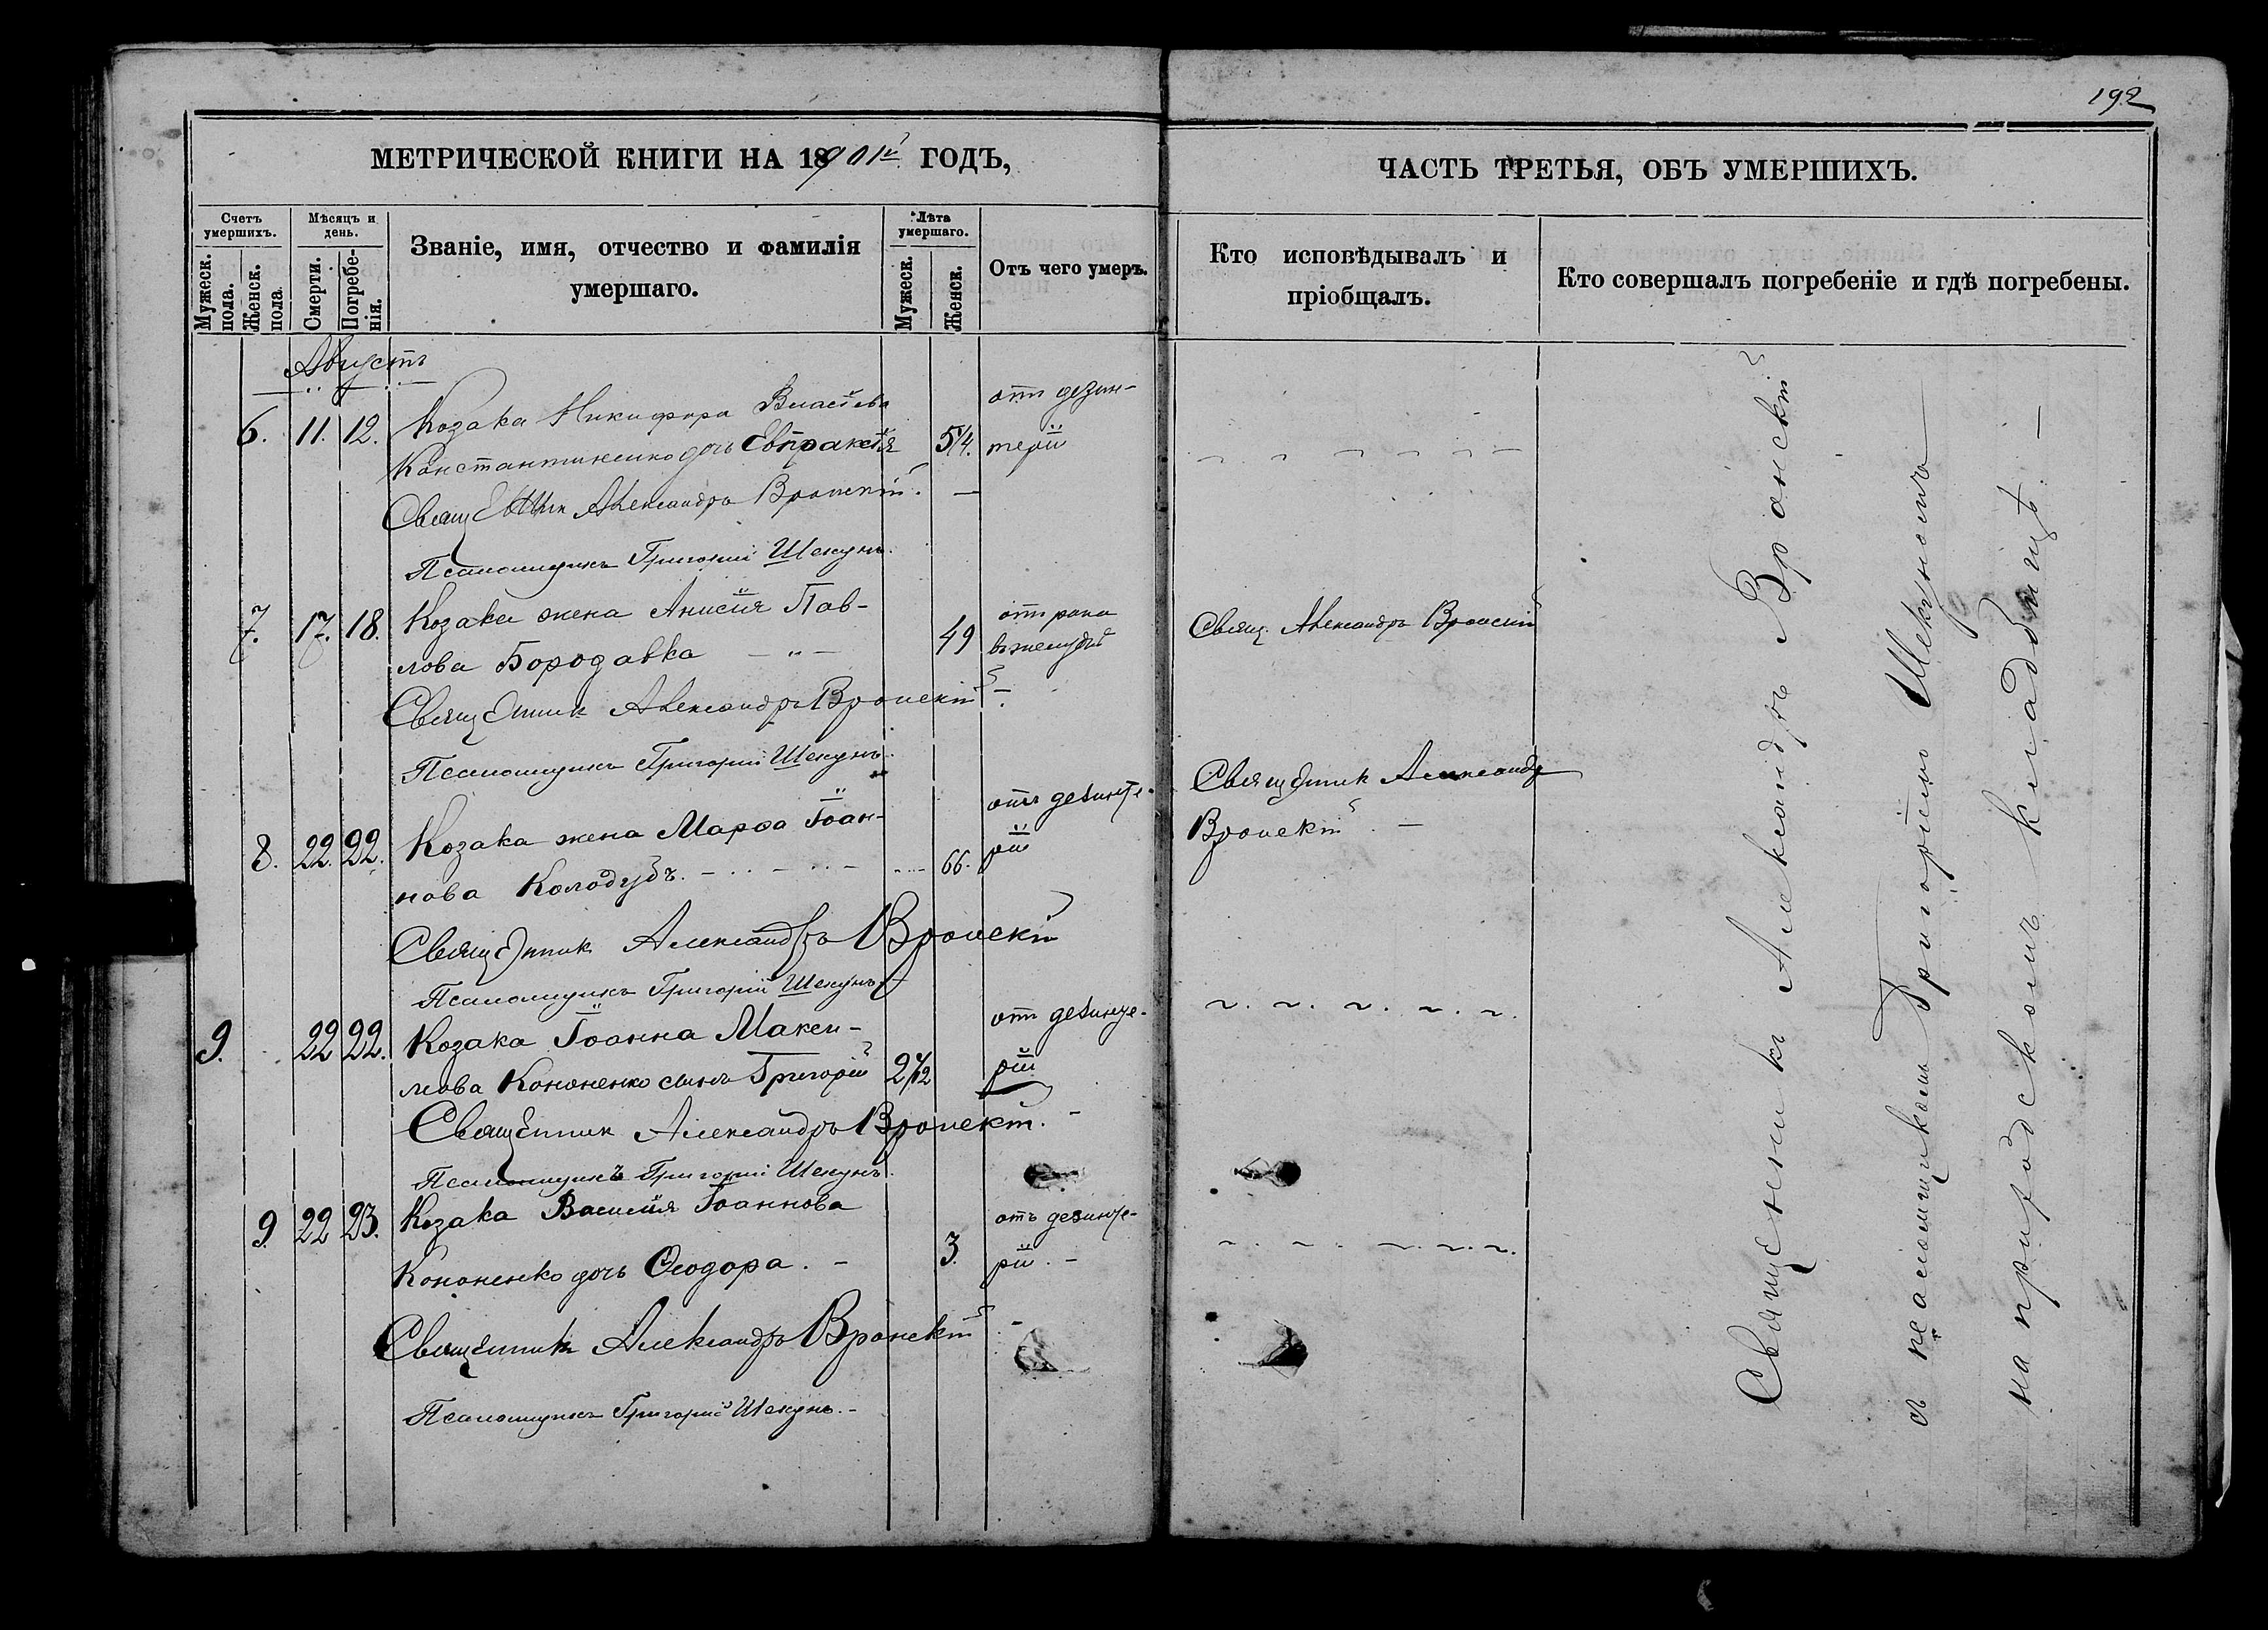 192
МЕТРИЧЕСКОЙ КНИГИ НА 1901й ГОДЪ,
Счетъ умершихъ.
Мужеск. пола.
Женск. пола.
Мѣсяцъ и день.
Смерти.
Погребе-
нія.
Званіе, имя, отчество и фамилія
умершаго.
Лѣта умершаго.
Мужеск.
Женск.
Отъ чего умеръ.
ЧАСТЬ ТРЕТЬЯ, ОБЪ УМЕРШИХЪ.
Кто исповѣдывалъ и
пріобщалъ.
Кто совершалъ погребеніе и гдѣ погребены.
Августъ
6. 11. 12. Козака Никифора Власіева
Константиненко дочь Евпраксія 5/4.
от дезин-
теріи
Священник Александръ Вронскій. —
Псаломщикъ Григорій Шекунъ.
7. 17. 18. Козака жена Анисія Пав-
лова Бородавка — " — 49
от рака
въ желудкѣ
Свящ. Александръ Вронскій
Священник Александръ Вронскій —
Псаломщикъ Григорій Шекунъ.
8. 22. 22. Козака жена Марѳа Іоан-
нова Колодубъ. 66.
отъ дезинте-
ріи
Священник Александр
Вронскій. —
Священник Александръ Вронскій
Псаломщикъ Григорій Шекунъ
9. 22 22. Козака Іоанна Макси-
мова Кононенко сынъ Григорій
от дезинте-
ріи
Священник Александръ Вронскій. —
Псаломщикъ Григорій Шекунъ.
9. 22 23. Козака Василія Іоаннова
Кононенко дочь Ѳеодора. — 3.
отъ дезинте-
ріи. —
Священник Александръ Вронскій. —
Псаломщикъ Григорій Шекунъ. —
Священникъ Александръ Вронскій
съ псаломщикомъ Григоріемъ Шекуномъ
на приходскомъ кладбищѣ. —